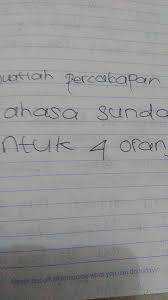 uatlah percabapan
ahasa sunda
ntuk 4 oran